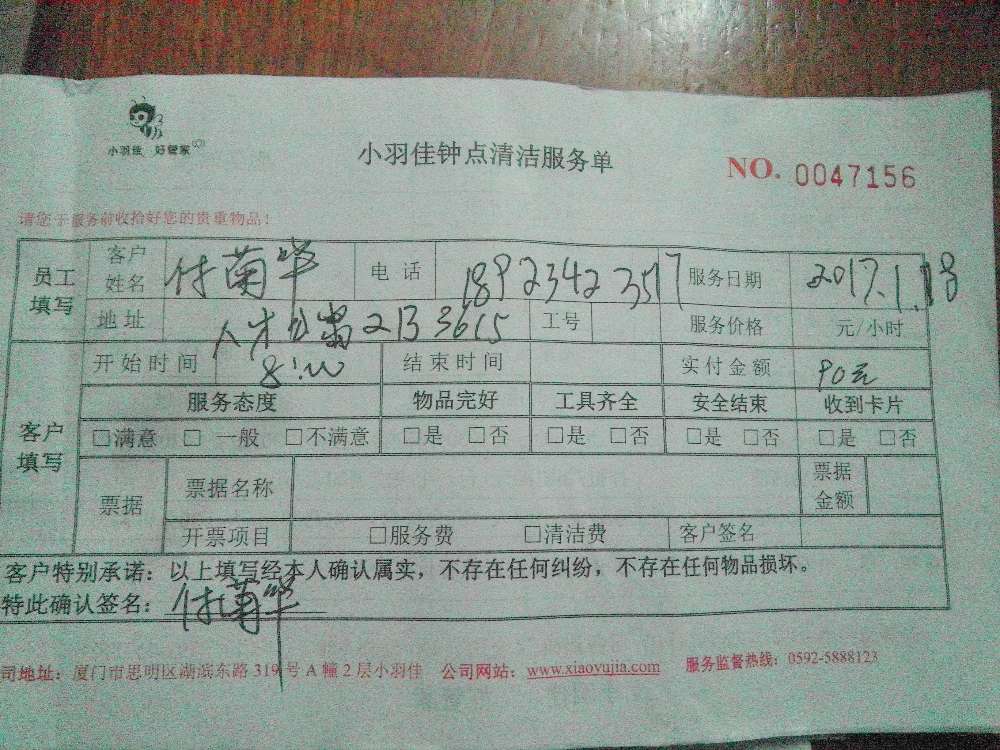 小羽佳 好管家
小羽佳钟点清洁服务单
NO. 0047156
请您于服务前收拾好您的贵重物品！
员工填写 客户姓名 付菊华 电话 18923423517 服务日期 2017.1.18
地址 人才公寓 213 3615 工号 服务价格 元/小时
客户填写 开始时间 8:00 结束时间 实付金额 90元
服务态度 物品完好 工具齐全 安全结束 收到卡片
□满意 □一般 □不满意 □是 □否 □是 □否 □是 □否 □是 □否
票据 票据名称 票据金额
开票项目 □服务费 □清洁费 客户签名
客户特别承诺：以上填写经本人确认属实，不存在任何纠纷，不存在任何物品损坏。
特此确认签名：付菊华
司地址：厦门市思明区湖滨东路 319 号 A 幢 2 层小羽佳 公司网站：www.xiaoyujia.com 服务监督热线：0592-5888123